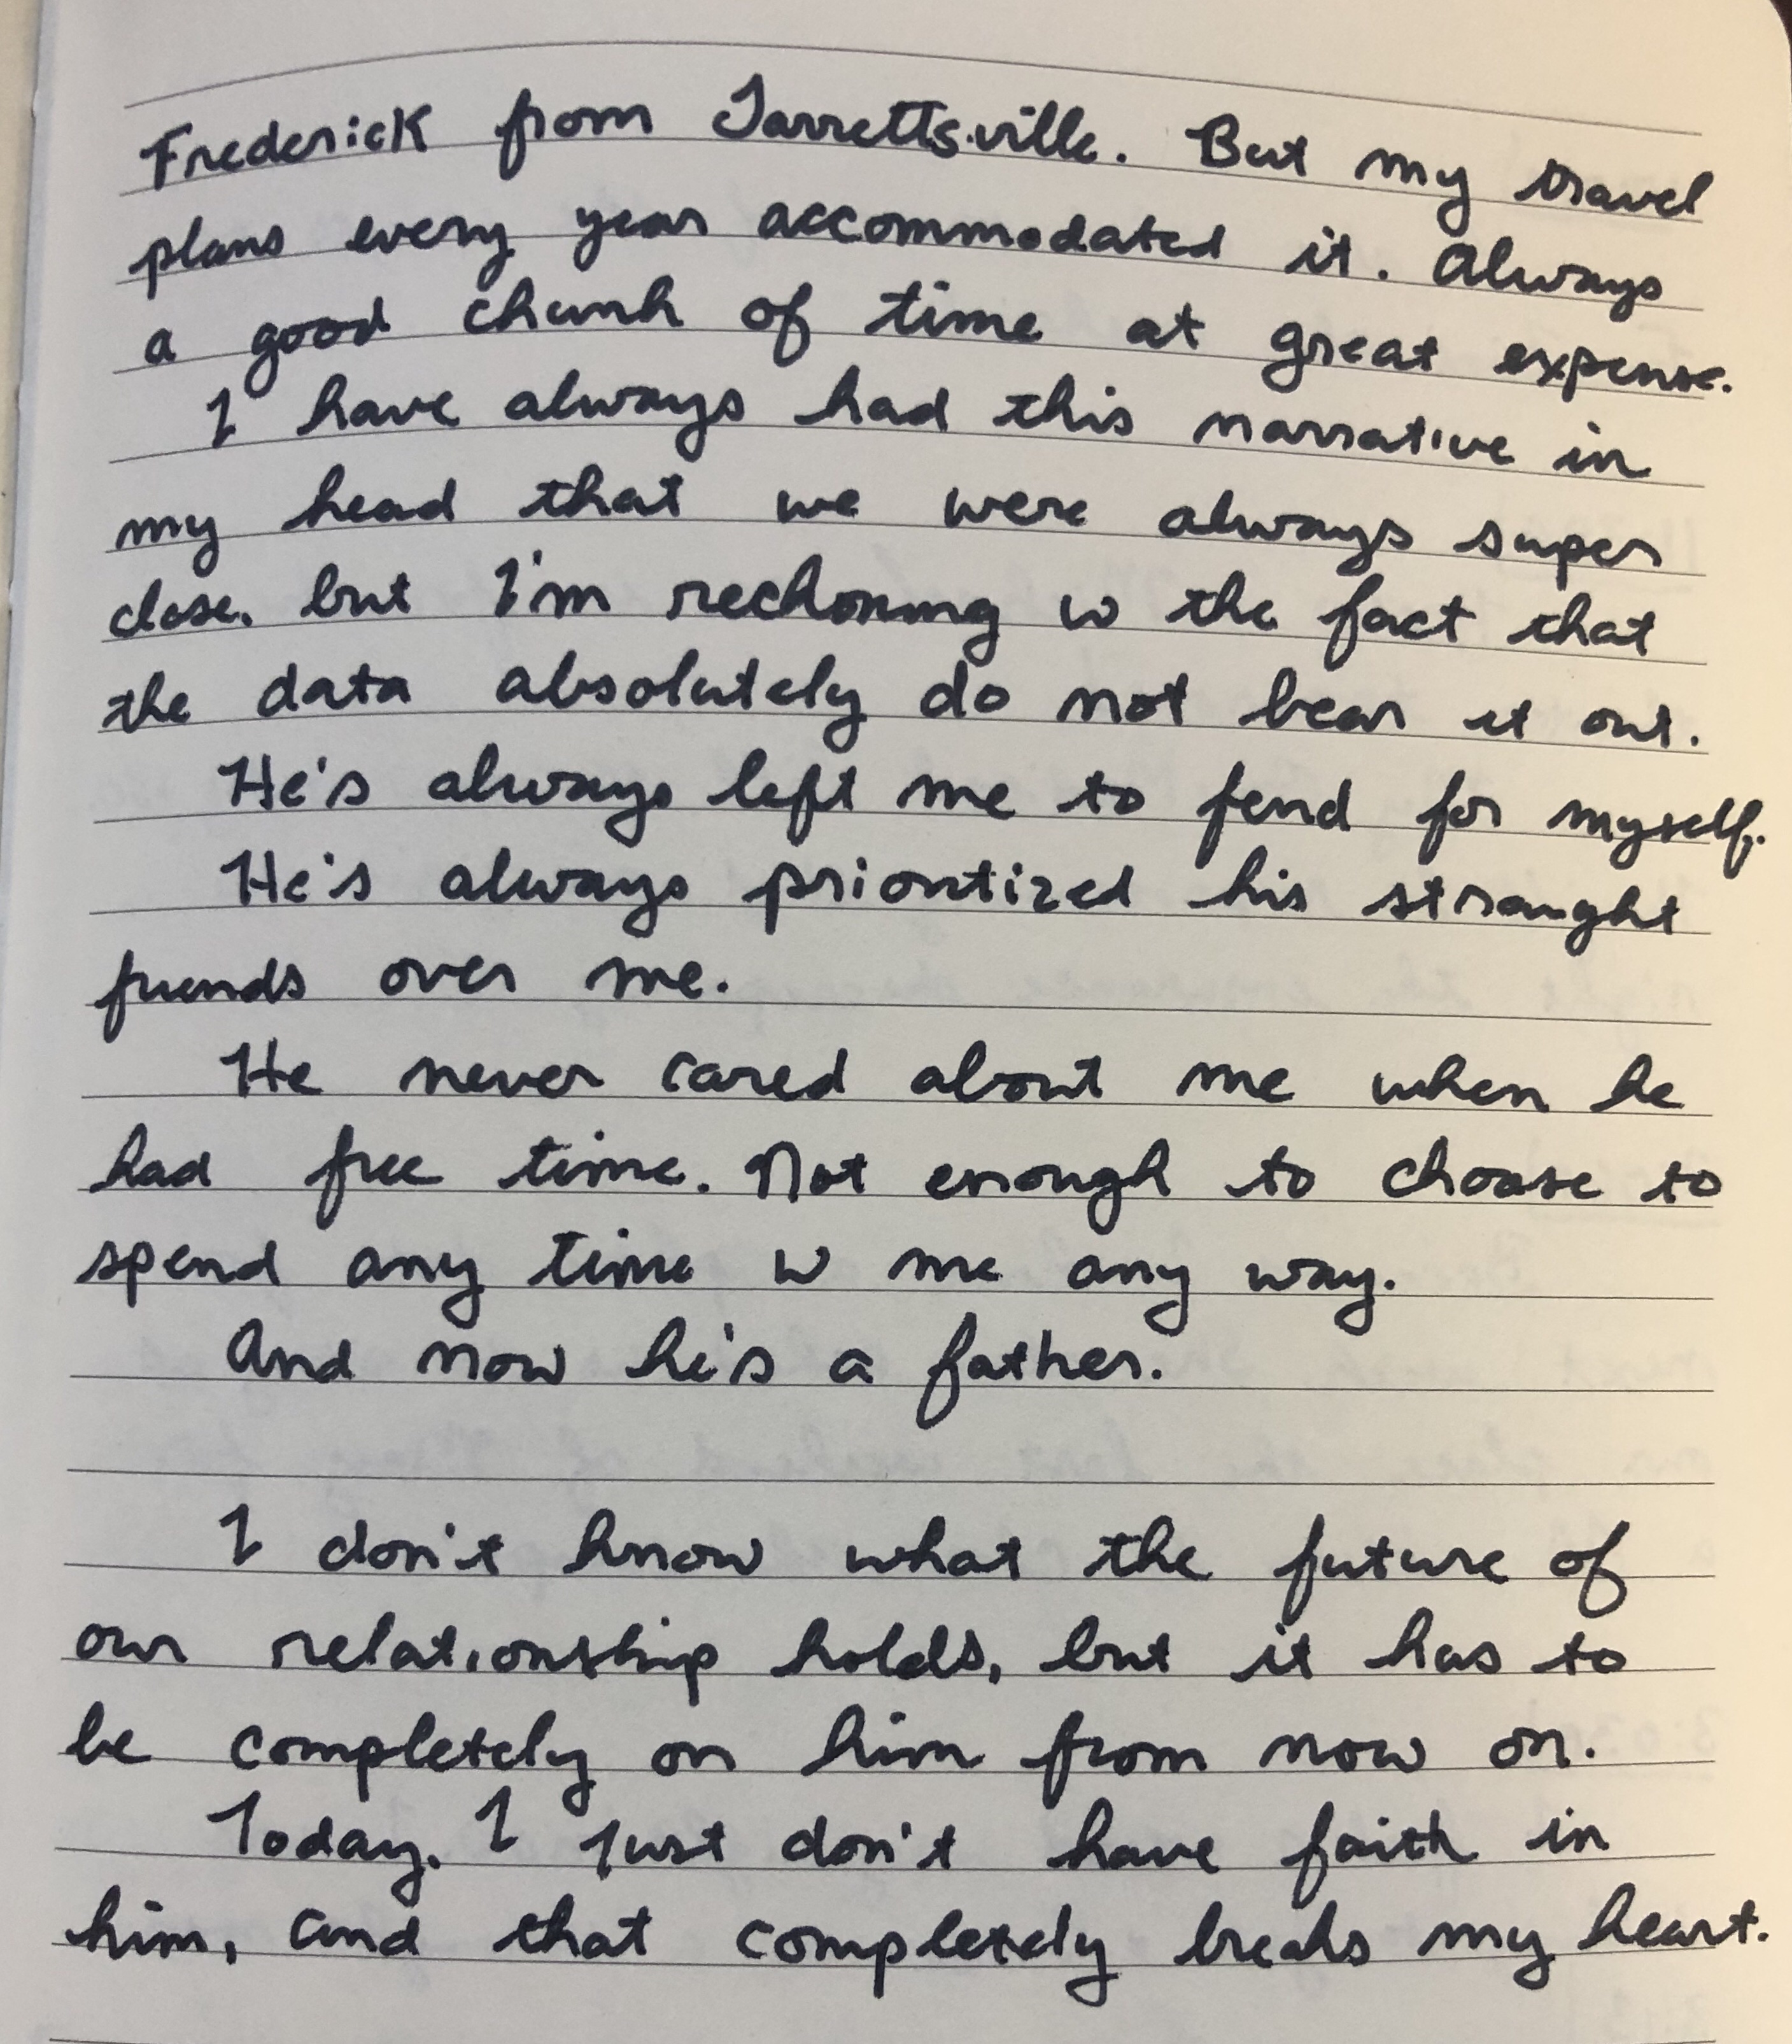 Frederick from Jarrettsville. But my travel
plans every year accommodated it. Always
a good chunk of time at great expense.
I have always had this narrative in
my head that we were always super
close, but I'm reckoning w the fact that
the data absolutely do not bear it out.
He's always left me to fend for myself.
He's always prioritized his straight
friends over me.
He never cared about me when he
had free time. Not enough to choose to
spend any time w me any way.
And now he's a father.
I don't know what the future of
our relationship holds, but it has to
be completely on him from now on.
Today, I just don't have faith in
him, and that completely breaks my heart.